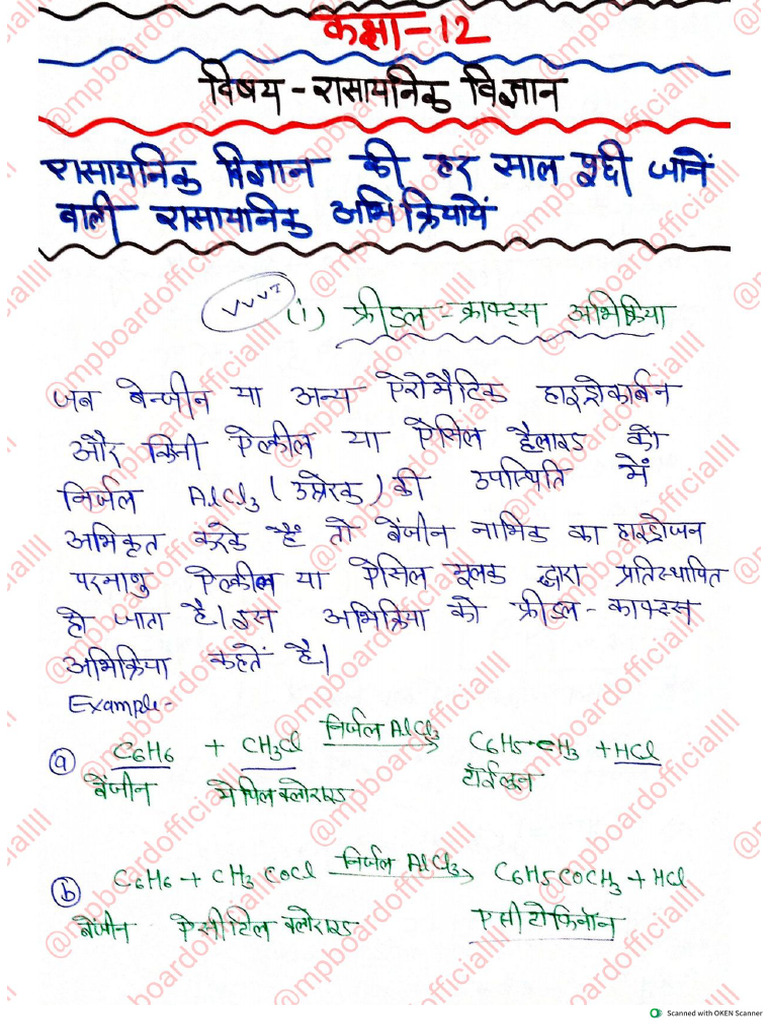 कक्षा-12
विषय - रासायनिक विज्ञान
रासायनिक विज्ञान की हर साल पूछी जाने
वाली रासायनिक अभिक्रियायें
VVVI (i) फ्रीडल-क्राफ्ट्स अभिक्रिया
जब बेन्जीन या अन्य ऐरोमैटिक हाइड्रोकार्बन
और किसी ऐल्कील या ऐसिल हैलाइड को
निर्जल AlCl3 (उत्प्रेरक) की उपस्थिति में
अभिकृत करके हैं तो बेंजीन नाभिक का हाइड्रोजन
परमाणु ऐल्कील या ऐसिल मूलक द्वारा प्रतिस्थापित
हो जाता है। इस अभिक्रिया को फ्रीडल-क्राफ्ट्स
अभिक्रिया कहतें है।
Example-
(a) C6H6 + CH3Cl निर्जल AlCl3 → C6H5-CH3 + HCl
बेंजीन मेथिल क्लोराइड टॉईलून
(b) C6H6 + CH3COCl निर्जल AlCl3 → C6H5COCH3 + HCl
बेंजीन ऐसीटिल क्लोराइड एसीटोफिनॉन
@mpboardofficiallll
Scanned with OKEN Scanner